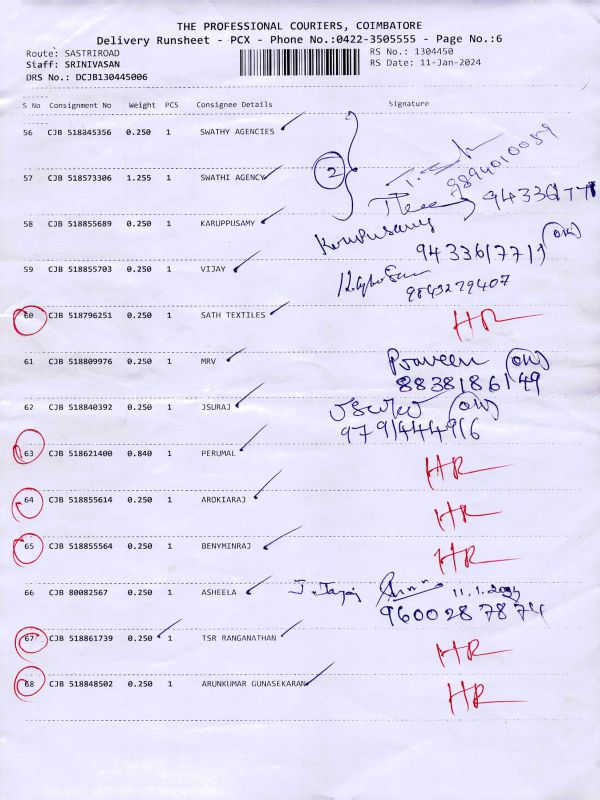 THE PROFESSIONAL COURIERS, COIMBATORE
Delivery Runsheet - PCX - Phone No.:0422-3505555 - Page No.:6
Route: SASTRIROAD
RS No.: 1304450
Staff: SRINIVASAN
RS Date: 11-Jan-2024
DRS No.: DCJB130445006
S No Consignment No Weight PCS Consignee Details Signature
56 CJB 518845356 0.250 1 SWATHY AGENCIES
2
9894010059
57 CJB 518573306 1.255 1 SWATHI AGENCY
58 CJB 518855689 0.250 1 KARUPPUSAMY
Karuppusamy
9433617711 (OW)
59 CJB 518855703 0.250 1 VIJAY
9843279407
60 CJB 518796251 0.250 1 SATH TEXTILES HR
61 CJB 518809976 0.250 1 MRV Praveen (OW)
8838186149
62 CJB 518840392 0.250 1 JSURAJ (OW)
9791444916
63 CJB 518621400 0.840 1 PERUMAL HR
64 CJB 518855614 0.250 1 AROKIARAJ HR
65 CJB 518855564 0.250 1 BENYMINRAJ HR
66 CJB 80082567 0.250 1 ASHEELA 11.1.2024
9600287874
67 CJB 518861739 0.250 1 TSR RANGANATHAN HR
68 CJB 518848502 0.250 1 ARUNKUMAR GUNASEKARAN HR